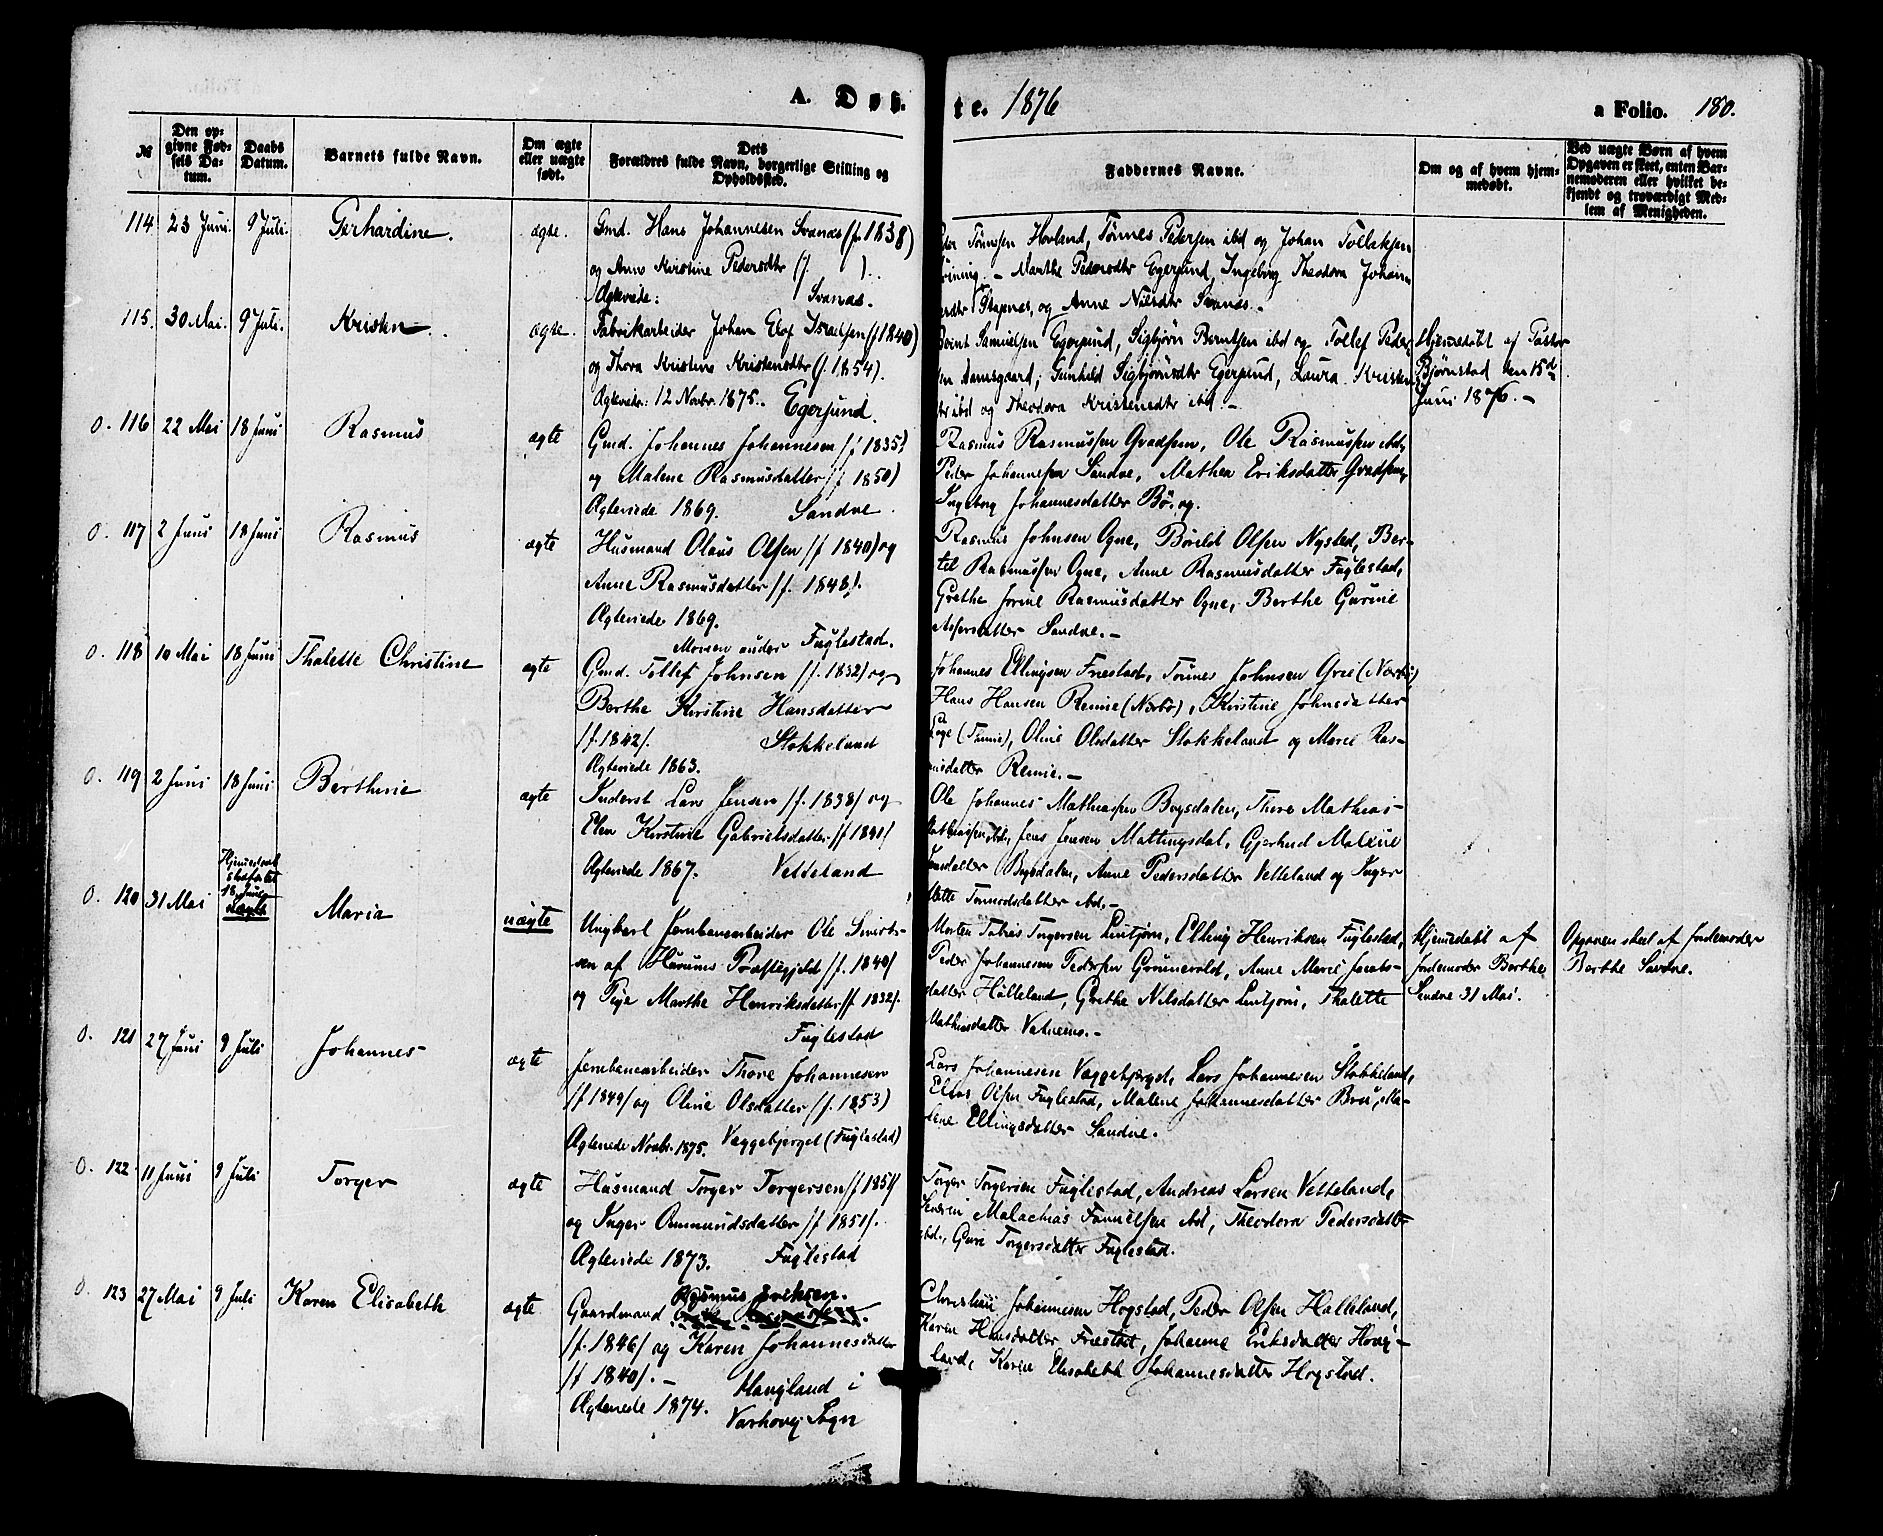 A. Døb
te. 1876
a Folio. 180.
№
Den op-
givne Fød-
sels Da-
tum.
Daabs
Datum.
Barnets fulde Navn.
Om ægte
eller uægte
født.
Dets
Forældres fulde Navn, borgerlige Stilling og
Opholdssted.
Faddernes Navne.
Om og af hvem hjem-
medøbt.
Ved uægte Børn af hvem
Opgaven er skeet, enten Bar-
nemoderen eller hvilket be-
kjendt og troværdigt Med-
lem af Menigheden.
114 23 Juni. 9 Juli. Gerhardine. ægte.
Gmd. Hans Johannesen Svanæs (f. 1838)
og Anne Kristine Pedersdtr (f. ).
Ægteviede: Svanæs.
Tønnesen Hovland, Tønnes Pedersen ibd og Johan Tollaksen
Marthe Pedersdtr Egersund, Ingeborg Theodora Johann
Stapnæs, og Anne Nilsdtr Svanæs.
115. 30 Mai. 9 Juli. Kristen. ægte.
Fabrikarbeider Johan Elof Israelsen (f 1840)
og Thora Kristine Kristensdtr (f. 1854).
Ægtevidr: 12 Novbr. 1875. Egersund.
Samuelsen Egersund, Sigbjørn Berntsen ibd og Tollef Peder-
sen Damsgaard; Gunhild Sigbjørnsdtr Egersund, Laura Kristen
dtr ibd og Theodora Kristensdtr ibd. -
Hjemedøbt af Pastor
Bjørnstad den 15de
Juni 1876. -
0. 116 22 Mai 18 Juni Rasmus ægte
Gmd. Johannes Johannesen (f 1835)
og Malene Rasmusdatter (f 1850)
Ægteviede 1869. Sandve
Rasmus Rasmussen Gvadsem, Ole Rasmussen ibd,
Peder Johannesen Sandve, Mathea Eriksdatter Gvadsem,
Ingeborg Johannesdatter Bø. og.
0. 117 2 Juni 18 Juni Rasmus ægte
Husmand Olaus Olsen (f 1840) og
Anne Rasmusdatter (f. 1848).
Ægteviede 1869.
Moien under Fuglestad.
Rasmus Johnsen Ogne, Børild Olsen Nysted, Ber-
til Rasmussen Ogne, Anne Rasmusdatter Fuglestad,
Grethe Jorine Rasmusdatter Ogne, Berthe Gurine
Sandve. -
0. 118 10 Mai 18 Juni Thalette Christine ægte
Gmd. Tollef Johnsen (f. 1832) og
Berthe Kirstine Hansdatter
(f. 1842). Stokkeland
Ægteviede 1863.
Johannes Ellingsen Friestad, Tønnes Johnsen
Hans Hansen Reime (Nærbø), Kristine Johnsdatter
Oline Olsdatter Stokkeland og Marie Ras-
musdatter Reime. -
0. 119 2 Juni 18 Juni Berthine ægte
Inderst Lars Jensen (f. 1838) og
Elen Kirstine Gabrielsdatter (f 1841)
Ægteviede 1867. Vetteland
Ole Johannes Mathiassen Bogsdalen, Thore Mathias
Mathiassen ibd, Jens Jensen Mattingsdal, Gjertrud Malene
Jensdatter Bogsdalen, Anne Pedersdatter Vetteland og Inger
Mette Tormodsdatter ibd. -
0. 120 31 Mai
Hjemmedaab
stadfæstet
18 Juni
Maria uægte
Ungkarl Jernbanearbeider Ole
sen af Præstegjeld (f. 1840)
og Pige Marthe Henriksdatter (f 1832).
Fuglestad
Morten Tobias Torgersen Lintjørn, Elling Henriksen Fuglestad,
Peder Johannesens Pedersen Grønnevold, Anne Marie Jacobs-
datter Hølleland, Grethe Nilsdatter Lintjørn, Thalette
Mathiasdatter Vatnemo. -
Hjemedøbt af
Jordemoder Berthe
Sandve 31 Mai.
Opgaven skeet af Jordemoder
Berthe Sandve.
0. 121 27 Juni 9 Juli Johannes ægte
Jernbanearbeider Thore Johannesen
(f 1849) og Oline Olsdatter (f. 1853)
Ægteviede Novbr. 1875. Væggebjerget (Fuglestad)
Lars Johannesen Væggebjerget, Lars Johannesen Stokkeland,
Elias Olsen Fuglestad, Malene Johannesdatter Bru, Ma-
lene Ellingsdatter Sandve.
0. 122 11 Juni 9 Juli Torger ægte
Husmand Torger Torgersen (f 1851)
og Inger Ommundsdatter (f 1851).
Ægteviede 1873. Fuglestad
Torger Torgersen Fuglestad, Andreas Larsen Vetteland,
Severin Malachias ibd, Theodora Pedersdatter
ibd., Guri Torgersdatter Fuglestad.
0. 123 27 Mai 9 Juli Karen Elisabeth ægte
Rasmus Eriksen.
Gaardmand
(f. 1846) og Karen Johannesdatter
(f 1840). -
Ægteviede 1874. Haugland i
Varhoug Sogn
Christian Johannesen Hogstad, Peder Olsen Hølleland,
Karen Hansdatter Friestad, Johanne Eriksdatter Houg-
land, Karen Elisabeth Johannesdatter Hogstad.